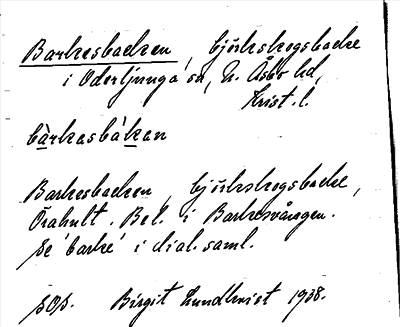 Barkesbacken, björkskogsbacke
i Oderljunga sn, N. Åsbo hd,
Krist. l.
bàrkasbákan
Barkesbacken, björkskogsbacke,
Örahult. Bel. i Barkesvången.
Se 'barke' i dial. saml.
Birgit Lundkvist 1938.